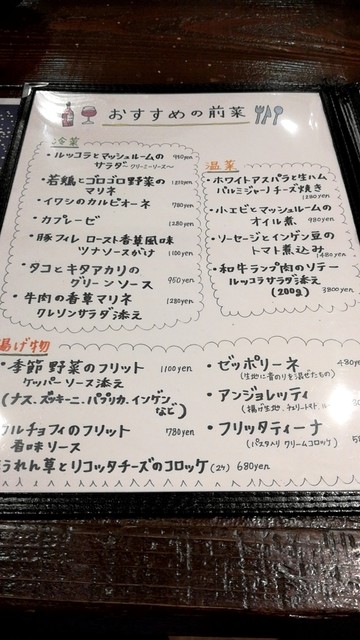 おすすめの前菜
冷菜
・ルッコラとマッシュルームの
サラダ クリーミーソース〜
・若鶏とゴロゴロ野菜の
マリネ
・イワシのカルピオーネ 780yen
・カプレーゼ 1280yen
・豚フィレ ロースト香草風味
ツナソースがけ 1100yen
・タコとキタアカリの
グリーンソース 950yen
・牛肉の香草マリネ 1280yen
クレソンサラダ添え
温菜
・ホワイトアスパラと生ハム
パルミジャーノチーズ焼き 1280yen
・小エビとマッシュルームの
オイル煮 980yen
・ソーセージとインゲン豆の
トマト煮込み 1480yen
・和牛ランプ肉のソテー
ルッコラサラダ添え
(200g) 3800yen
揚げ物
・季節野菜のフリット 1100yen
ケッパーソース添え
(ナス、ズッキーニ、パプリカ、インゲン
など)
ルチョフィのフリット 780yen
香味ソース
うれん草とリコッタチーズのコロッケ(2ケ) 680yen
・ゼッポリーネ 480ye
(生地に青のりを混ぜたもの)
・アンジョレッティ
(揚げ生地、チェリートマト、ル
・フリッタティーナ
(パスタ入りクリームコロッケ)